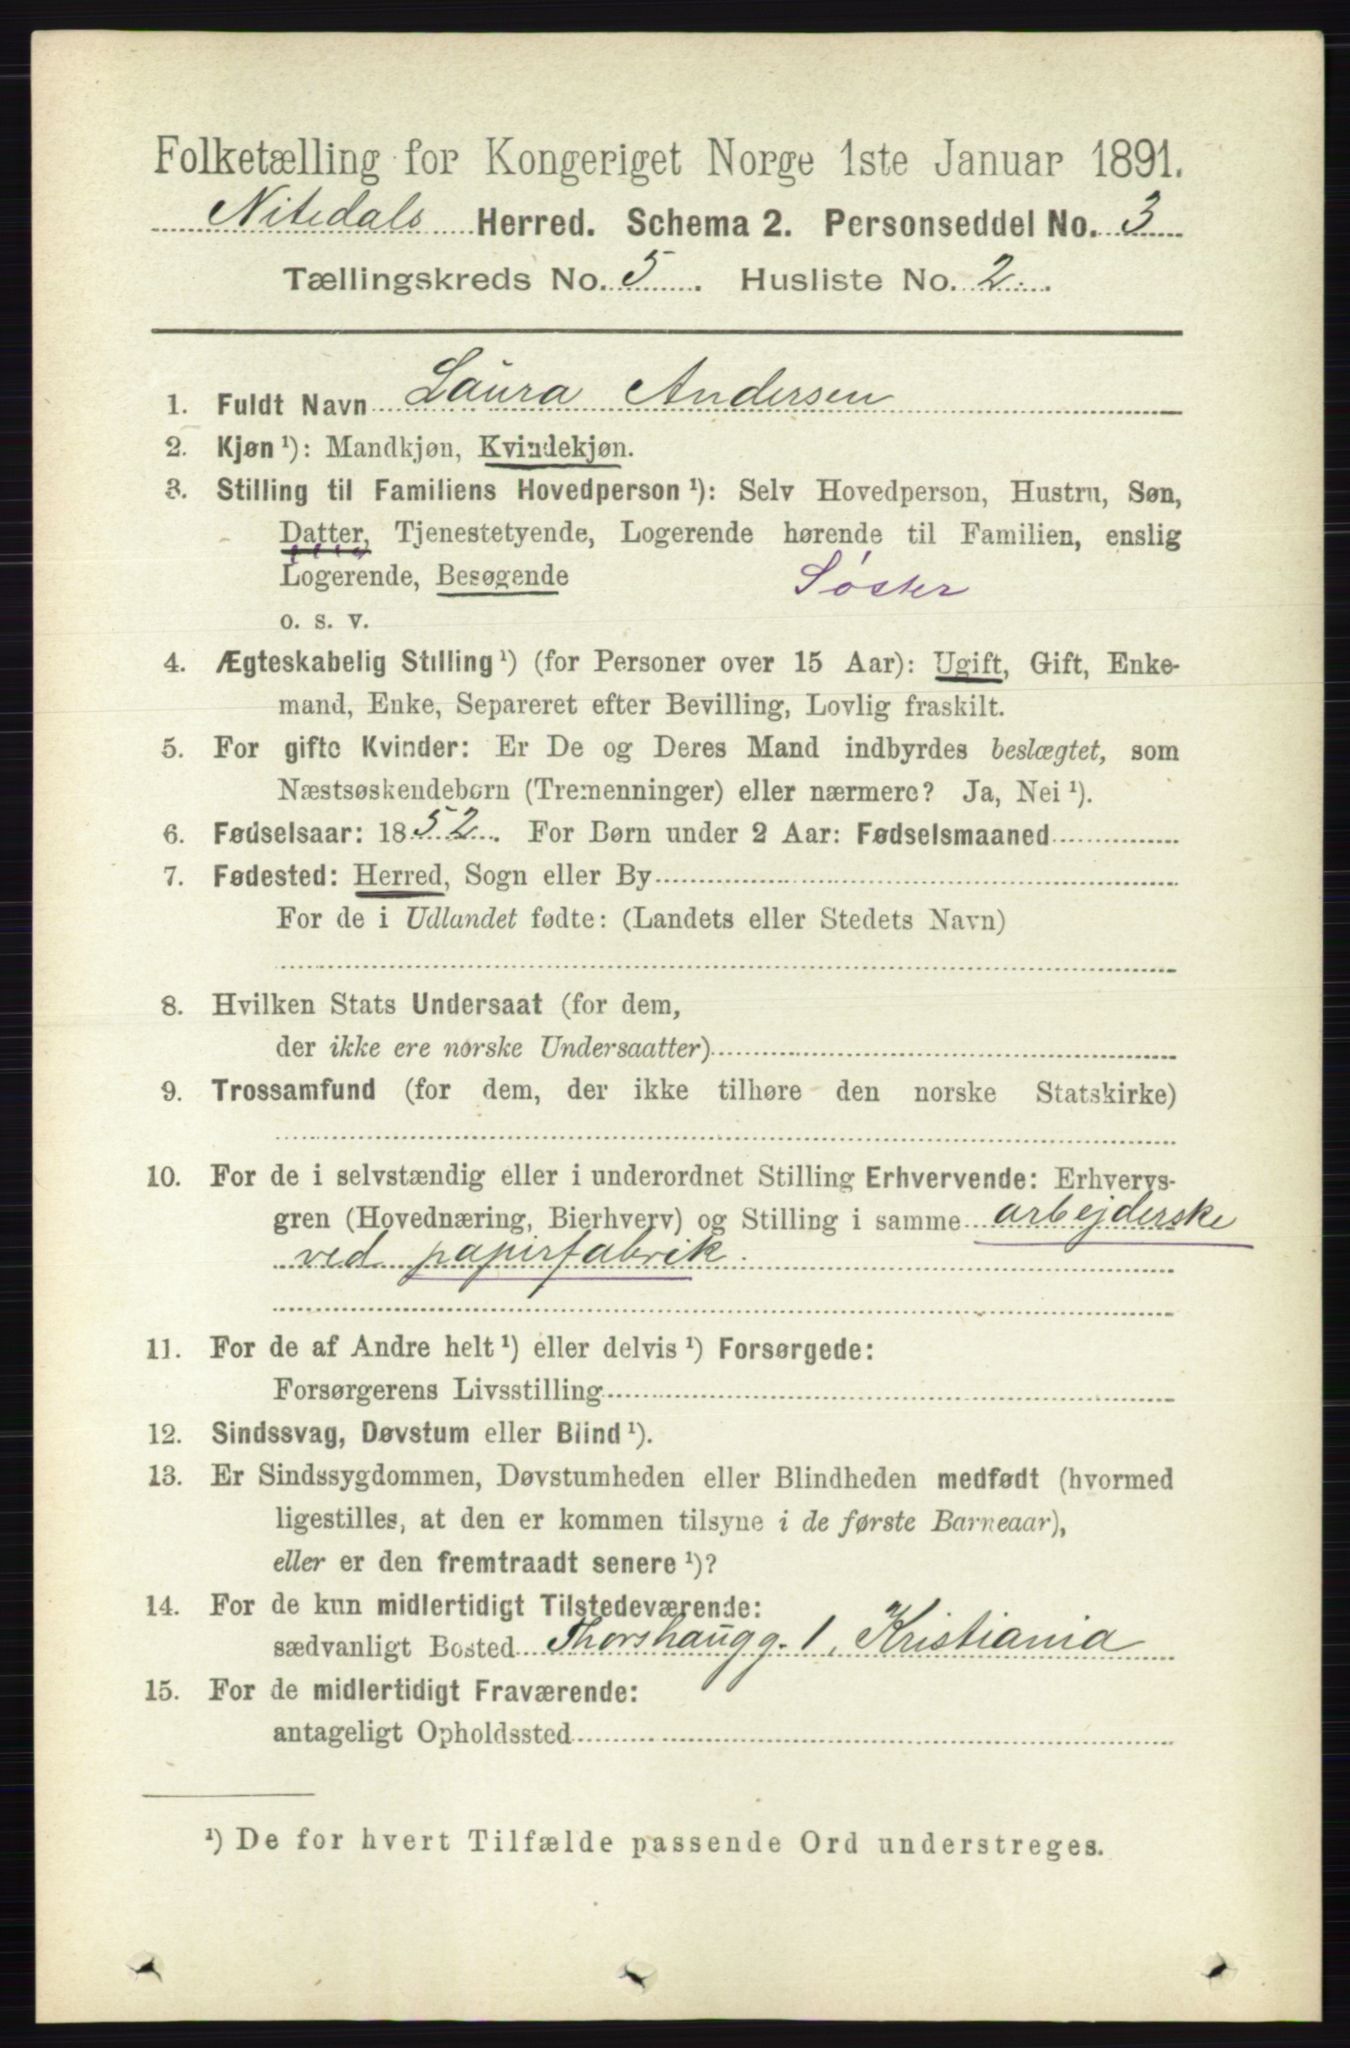 Folketælling for Kongeriget Norge 1ste Januar 1891.
Nitedals Herred. Schema 2. Personseddel No. 3
Tællingskreds No. 5. Husliste No. 2.
1. Fuldt Navn Laura Andersen
2. Kjøn ¹): Mandkjøn, Kvindekjøn.
3. Stilling til Familiens Hovedperson ¹): Selv Hovedperson, Hustru, Søn,
Datter, Tjenestetyende, Logerende hørende til Familien, enslig
Logerende, Besøgende Søster
o. s. v.
4. Ægteskabelig Stilling ¹) (for Personer over 15 Aar): Ugift, Gift, Enke-
mand, Enke, Separeret efter Bevilling, Lovlig fraskilt.
5. For gifte Kvinder: Er De og Deres Mand indbyrdes beslægtet, som
Næstsøskendebørn (Tremenninger) eller nærmere? Ja, Nei ¹).
6. Fødselsaar: 1852. For Børn under 2 Aar: Fødselsmaaned
7. Fødested: Herred, Sogn eller By
For de i Udlandet fødte: (Landets eller Stedets Navn)
8. Hvilken Stats Undersaat (for dem,
der ikke ere norske Undersaatter)
9. Trossamfund (for dem, der ikke tilhøre den norske Statskirke)
10. For de i selvstændig eller i underordnet Stilling Erhvervende: Erhvervs-
gren (Hovednæring, Bierhverv) og Stilling i samme arbejderske
ved papirfabrik.
11. For de af Andre helt ¹) eller delvis ¹) Forsørgede:
Forsørgerens Livsstilling
12. Sindssvag, Døvstum eller Blind ¹).
13. Er Sindssygdommen, Døvstumheden eller Blindheden medfødt (hvormed
ligestilles, at den er kommen tilsyne i de første Barneaar),
eller er den fremtraadt senere ¹)?
14. For de kun midlertidigt Tilstedeværende:
sædvanligt Bosted Thorshaugg. 1, Kristiania
15. For de midlertidigt Fraværende:
antageligt Opholdssted
¹) De for hvert Tilfælde passende Ord understreges.